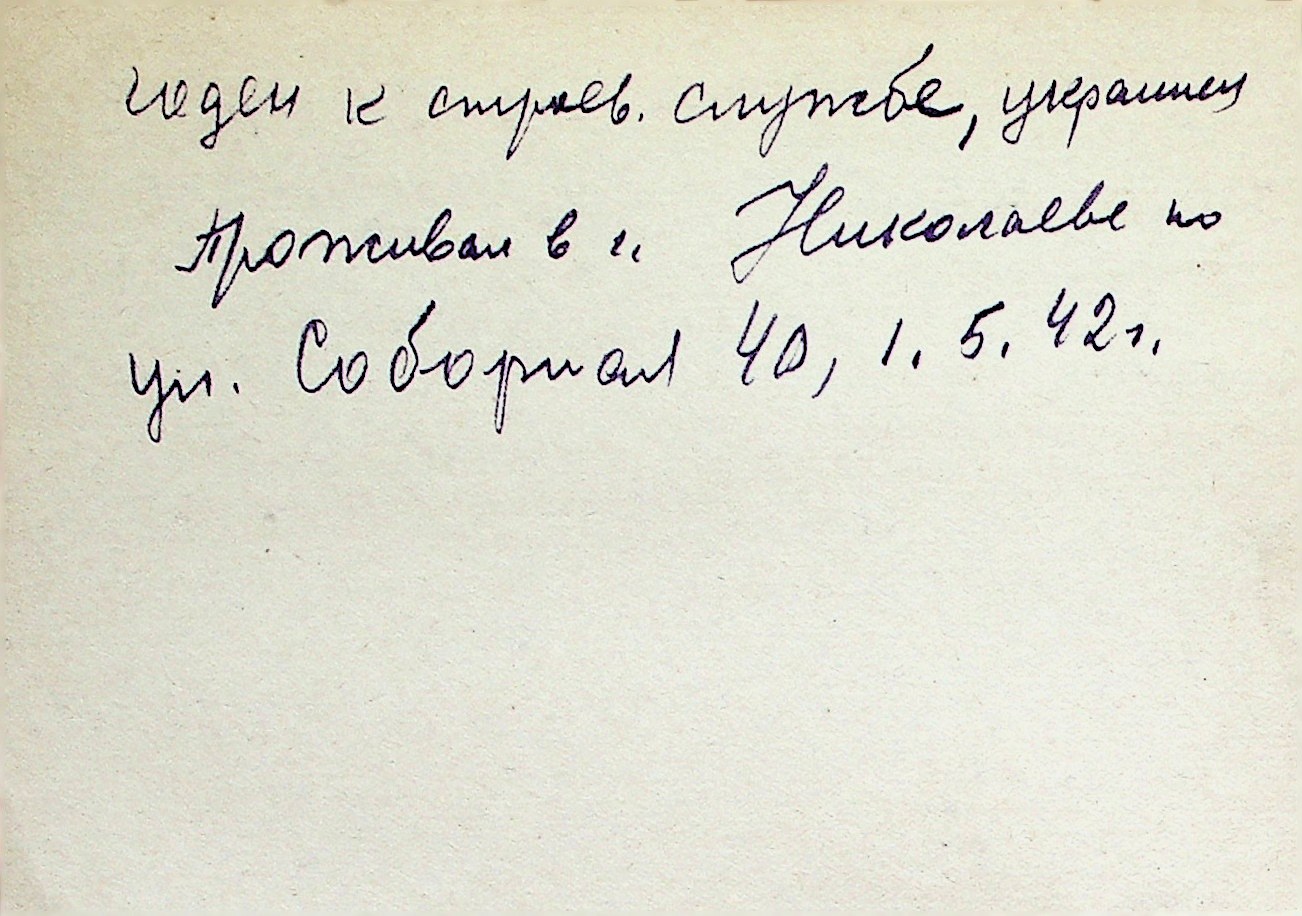 годен к строев. службе, украинец
Проживал в г. Николаеве по
ул. Соборная 40, 1. 5. 42 г.